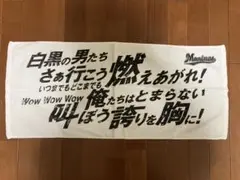 白黒の男たち
Marines
さぁ行こう燃えあがれ!
いつまでもどこまでも
Wow Wow Wow 俺たちはとまらない
叫ぼう誇りを胸に!